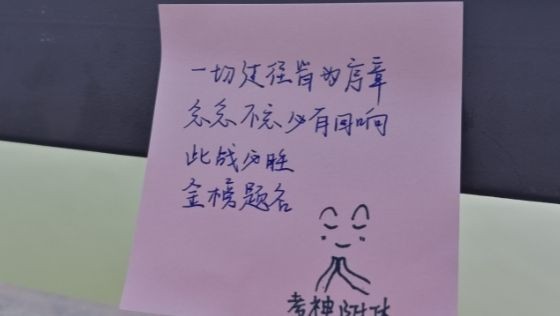 一切过往皆为序章
念念不忘必有回响
此战必胜
金榜题名
考神附体